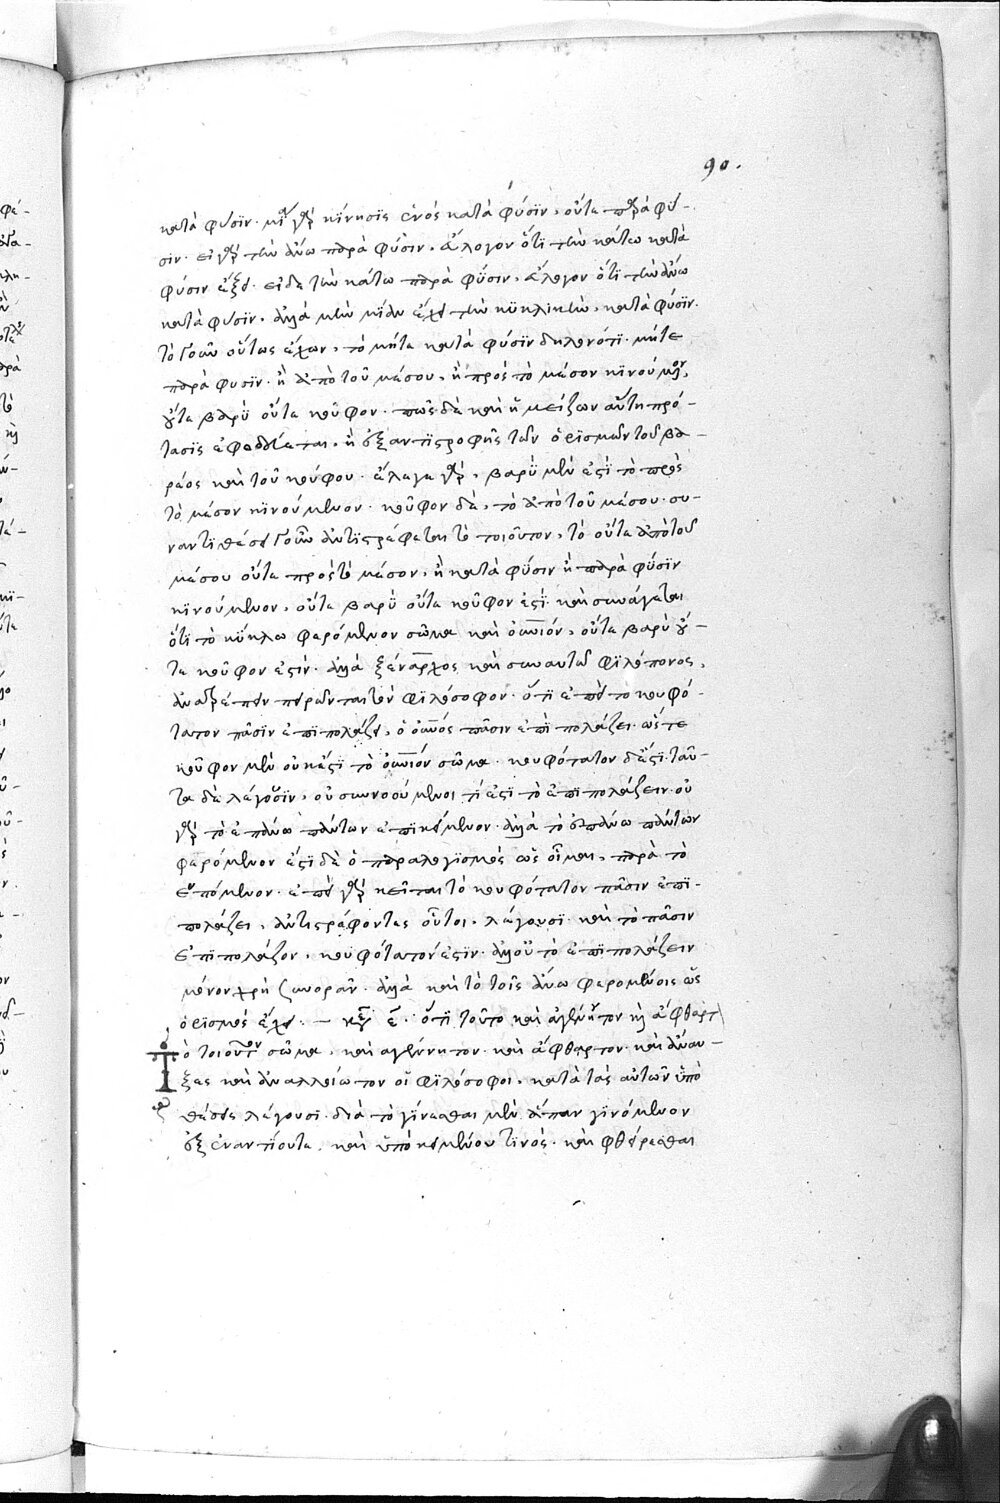 90.
κατὰ φύσιν· μία γὰρ κίνησις ἑνὸς κατὰ φύσιν, οὔτε παρὰ φύ-
σιν· εἰ γὰρ τὴν ἄνω παρὰ φύσιν, ἄλογον ὅτι τὴν κάτω κατὰ
φύσιν ἕξει· εἰ δὲ τὴν κάτω παρὰ φύσιν, ἔλεγον ὅτι τὴν ἄνω
κατὰ φύσιν· ἀλλὰ μὴν μίαν ἔχει τὴν κυκλικὴν, κατὰ φύσιν·
τὸ γοῦν οὕτως ἔχων, τὸ μήτε κατὰ φύσιν δηλονότι· μήτε
παρὰ φυσιν· ἢ ἀπὸ τοῦ μέσου, ἢ πρὸς τὸ μέσον κινούμενον,
οὔτε βαρὺ οὔτε κοῦφον· πῶς δὲ καὶ ἡ μείζων αὕτη πρό-
τασις ἐφοδιάζεται, ἢ ἐξ ἀντιστροφῆς τῶν ὁρισμῶν τοῦ βα-
ρέος καὶ τοῦ κούφου· ἔλεγε γὰρ, βαρὺ μὲν ἐστὶ τὸ πρὸς
τὸ μέσον κινούμενον· κοῦφον δὲ, τὸ ἀπὸ τοῦ μέσου· συ-
ναντιθέσει γοῦν ἀντιστρέφεται τὸ τοιοῦτον, τὸ οὔτε ἀπὸ τοῦ
μέσου οὔτε πρὸς τὸ μέσον, ἢ κατὰ φύσιν ἢ παρὰ φύσιν
κινούμενον, οὔτε βαρὺ οὔτε κοῦφον ἐστί· καὶ συνάγεται
ὅτι τὸ κύκλω φερόμενον σῶμα καὶ οὐράνιον, οὔτε βαρὺ οὔ-
τε κοῦφον ἐστίν· ἀλλὰ ξέναρχος καὶ σὺν αυτῶ φιλόπονος,
ἀνατρέπειν πειρῶνται τὸν φιλόσοφον· ὅτι ἐπεὶ το κουφό-
τατον πᾶσιν ἐπιπολάζει, ὁ οὐρανὸς πᾶσιν ἐπιπολάζει· ὥστε
κοῦφον μὲν οὐκ ἔστι τὸ οὐράνιον σῶμα· κουφότατον δ' ἐστί· ταῦ-
τα δὲ λέγουσιν, οὐ συννοούμενοι τί ἐστι τὸ ἐπιπολάζειν· οὐ
γὰρ τὸ ἐπάνω πάντων ἐπικείμενον· ἀλλὰ τὸ ἐπάνω πάντων
φερόμενον· ἐστὶ δὲ ὁ παραλογισμὸς ὡς οἶμαι, παρὰ τὸ
ἑπόμενον· ἐπεὶ γὰρ κεῖται τὸ κουφότατον πᾶσιν ἐπι-
πολάζει, ἀντιστρέφοντες οὗτοι, λέγουσι· καὶ τὸ πᾶσιν
ἐπιπολάζον, κουφότατον ἐστιν· ἀλλ' οὐ τὸ ἐπιπολάζειν
μόνον χρὴ συνορᾶν· ἀλλὰ καὶ τὸ τοῖς ἄνω φερομένοις ὡς
ὁρισμὸς ἔχει· — κεφ ε· ὅτι τοῦτο καὶ ἀγένητον κὴ ἄφθαρτ
Τὸ τοιοῦτον σῶμα, καὶ αγέννητον· καὶ ἄφθαρτον· καὶ ἀναυ-
ξὲς καὶ ἀναλλοίωτον οἱ φιλόσοφοι, κατὰ τὰς αὐτῶν ὑπο
θέσεις λέγουσι· διὰ τὸ γίνεσθαι μὲν ἅπαν γινόμενον
ἐξ ἐναντίου τε, καὶ ὑποκειμένου τινὸς· καὶ φθείρεσθαι